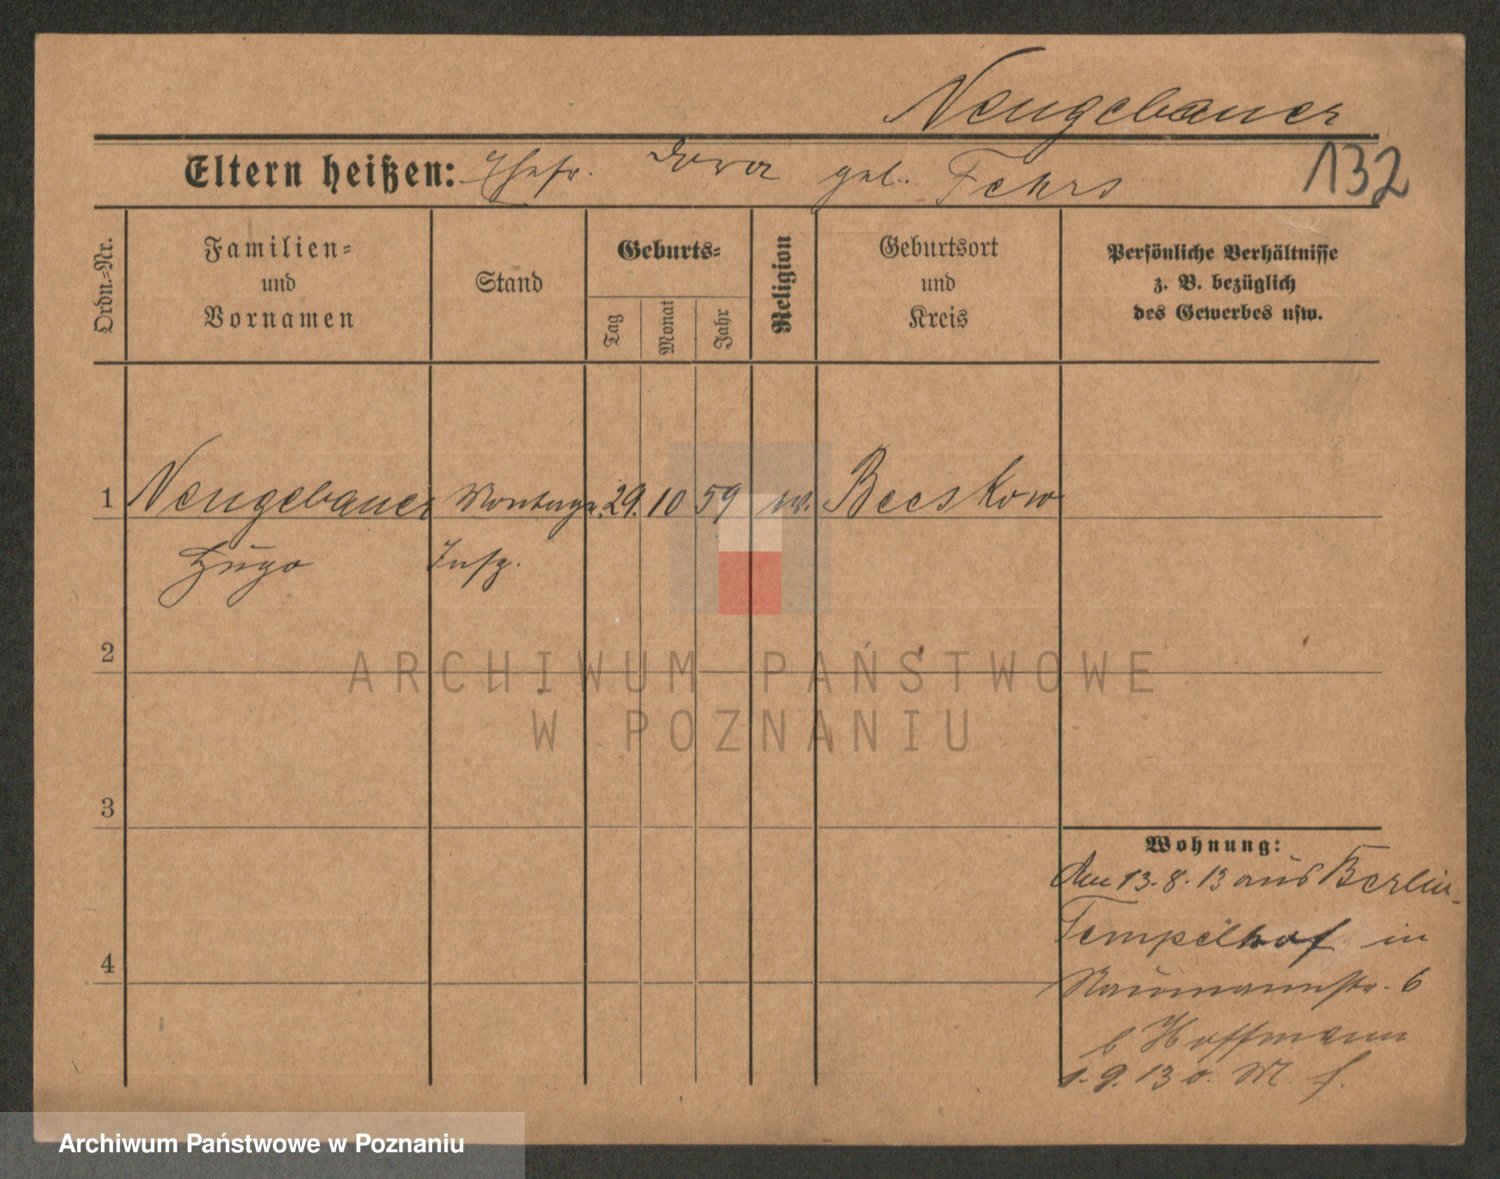 Neugebauer
Eltern heißen: Ehefr. Dora geb. Fehrs
132
Ordn.=Nr.
Familien=
und
Vornamen
Stand
Geburts=
Tag
Monat
Jahr
Religion
Geburtsort
und
Kreis
Persönliche Verhältnisse
z. B. bezüglich
des Gewerbes usw.
1 Neugebauer Montage 29. 10 59 Beeskow
Hugo Insp.
2
ARCHIWUM PAŃSTWOWE
W POZNANIU
3
Wohnung:
Am 13.8.13 aus Berlin-
Tempelhof in
Naumannstr. 6
b Hoffmann
1.9.13 o. M. f.
4
Archiwum Państwowe w Poznaniu